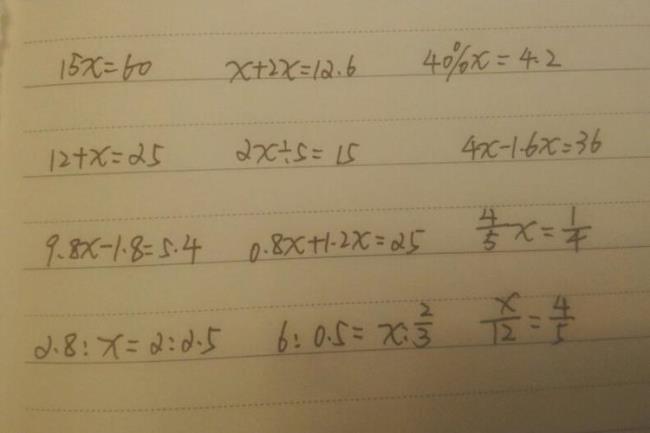 15x=60 x+2x=12.6 40%x=4.2
12+x=25 2x÷5=15 4x-1.6x=36
9.8x-1.8=5.4 0.8x+1.2x=25 4/5 x=1/4
2.8:x=2:2.5 6:0.5=x:2/3 x/12=4/5